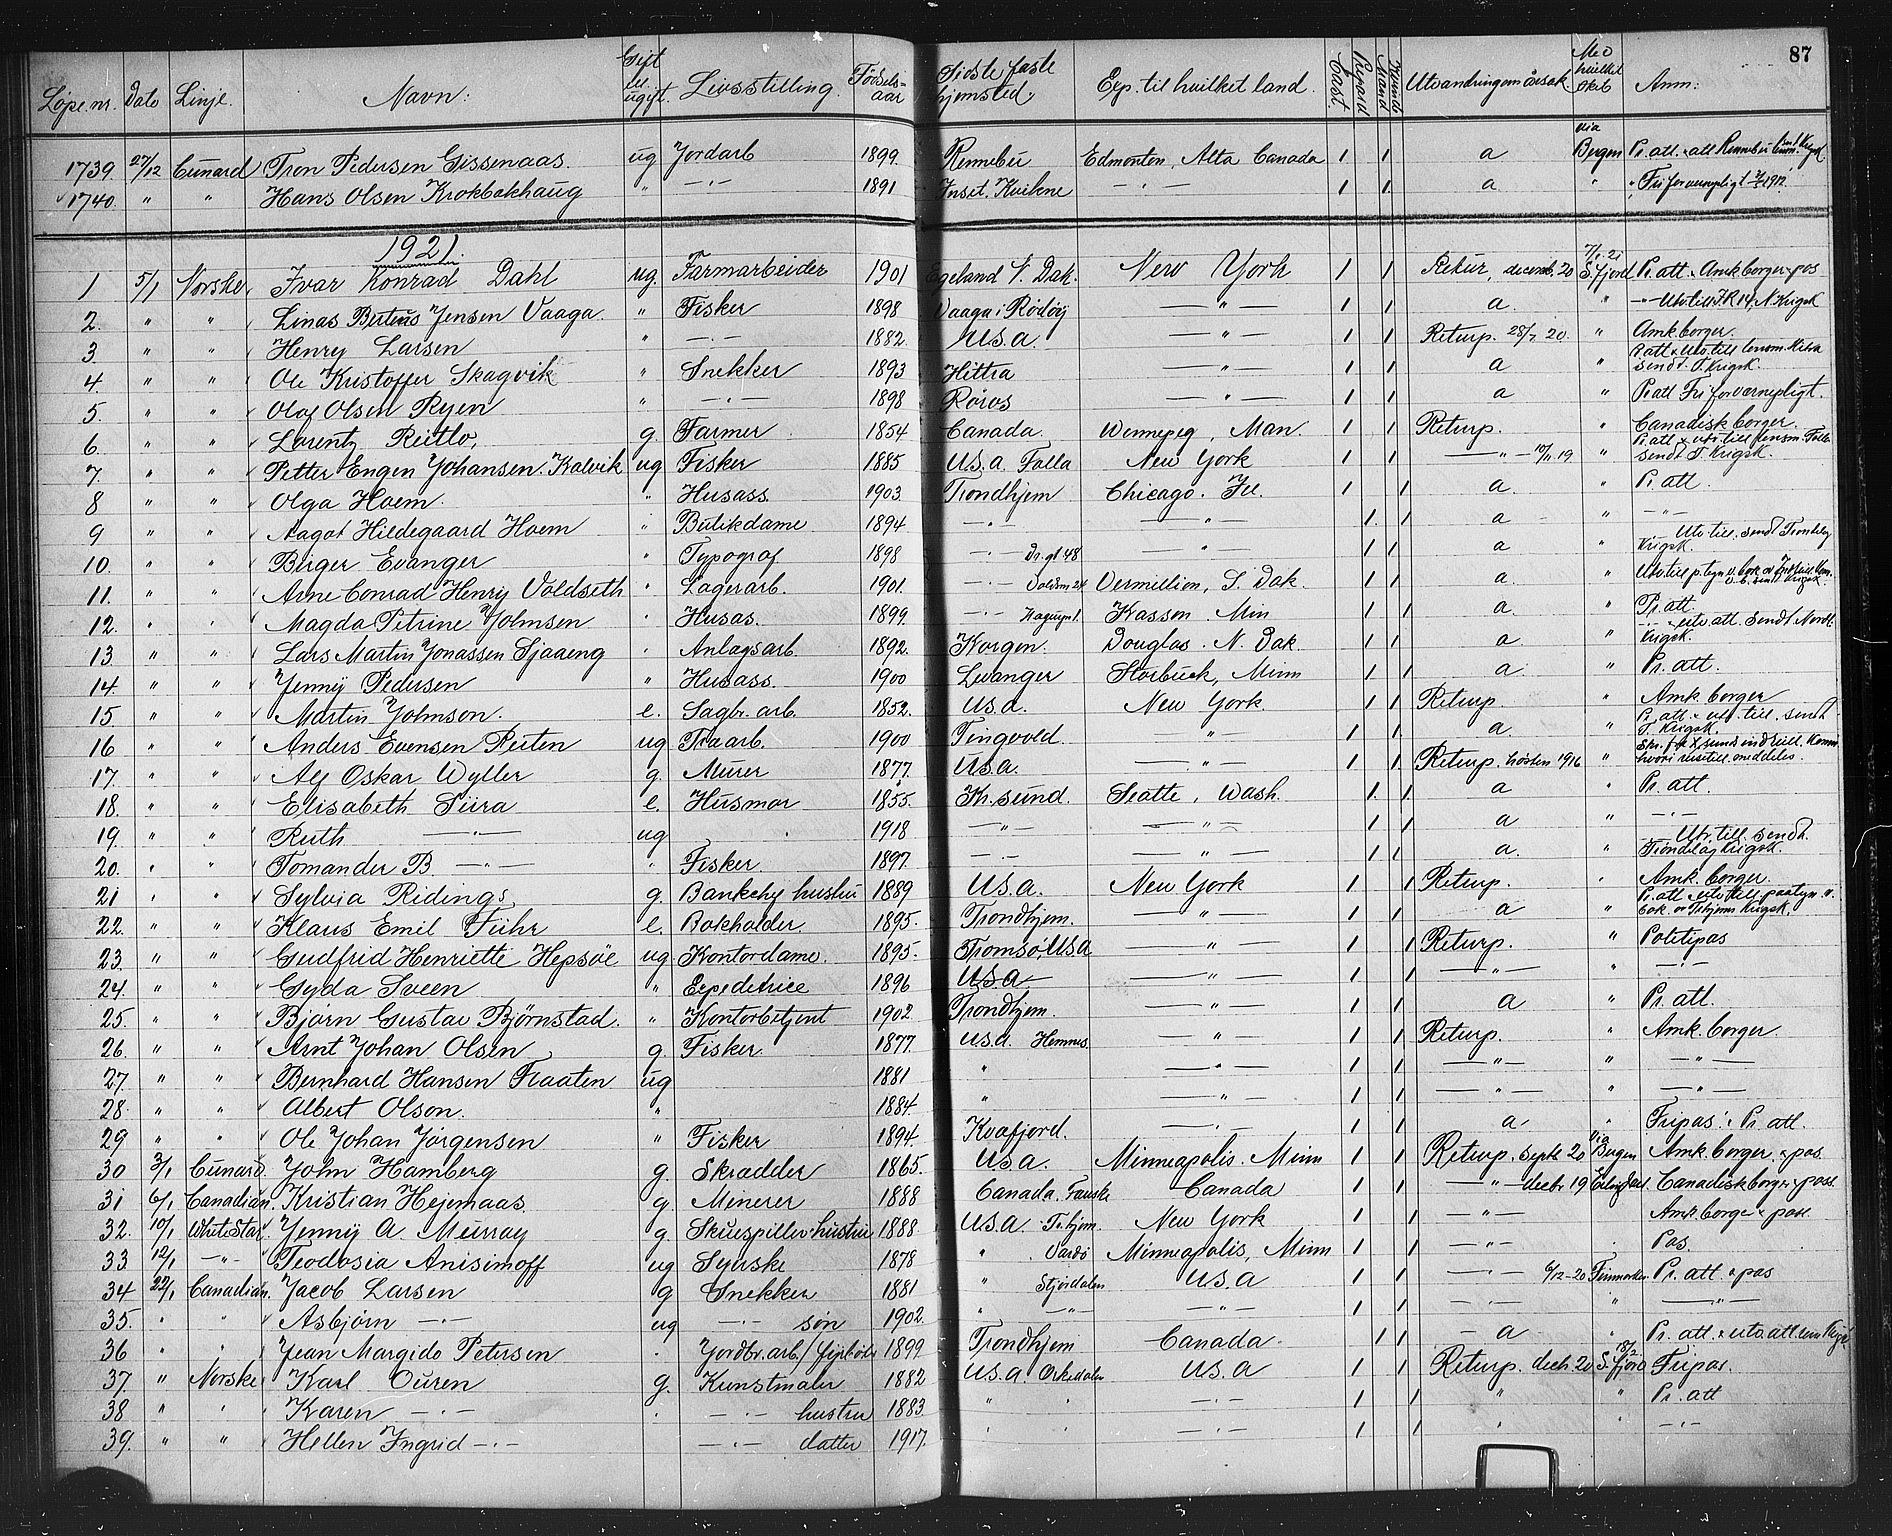 87
Løpe nr. Dato Linje. Navn: Gift el. ugift. Livsstilling. Fødsels-aar Sidste faste hjemsted. Exp. til hvilket land. Utvandringens årsak Med hvilket skib Anm:
1739. 27/12 Cunard Tron Pedersen Gissenaas. ug Jordarb 1899. Rennebu Edmonton, Alta Canada 1 1 a via Bergen Pr. att. att Rennebu
1740. " " Hans Olsen Krokbakhaug " -"- 1891 Inset. Kvikne -"- 1 1 a " " Fri for vernepligt 1917
1921.
1 5/1 Norske Ivar Konrad Dahl ug. Farmarbeider 1901 Egeland N. Dak. New York 1 1 Retur, decemb. 20 7/1-21 S. fjord Pr. att. Amk borger pas
2. " " Linas Berteus Jensen Vaaga. " Fisker 1898 Vaaga i Rødøy -"- 1 1 a " -"- Utv till I.R 14, N. Krigsk
3 " " Henry Larsen " -"- 1882. U.S.a. -"- 1 1 Returp. 28/7 20. " Amk borger.
4 " " Ole Kristoffer Skagvik " Snekker 1893 Hittra -"- 1 1 a " Pr att. Utv. till lensm. Hitra sendt T. Krigsk.
5. " " Olaf Olsen Ryen " -"- 1898 Røros -"- 1 1 a " Pr att Fri for værnepligt.
6. " " Lorentz Reitlo, g. Farmer 1854 Canada. Winnepeg, Man. 1 1 Returp. " Canadisk borger.
7. " " Petter Engen Johansen Kalvik ug Fisker 1885 U.S.a Folla New York 1 1 -"- 10/11 19 " Pr. att utv. till lensm. Folla sendt T. Krigsk.
8 " " Olga Hoem. " Husass. 1903. Trondhjem Chicago. Ill. 1 1 a. " Pr. att.
9 " " Aagot Hildegaard Hoem " Butikdame 1894 -"- -"- 1 1 a " -"-
10. " " Birger Evanger " Typograf 1898 -"- Dr. gt 48 -"- 1 1 a " Utv till. sendt Trondelag Krigsk.
11. " " Arne Conrad Henry Valdseth " Lagerarb. 1901. -"- Vermillion, S. Dak. 1 1 a. "
12. " " Magda Petrine Johnsen " Husas. 1899. -"- Kasson. Min 1 1 a. " Pr. att.
13. " " Lars Martin Jonassen Sjaaeng " Anlagsarb. 1892. Korgen. Douglas. N. Dak. 1 1 a. " -"- utv. att. sendt Nordl. Krigsk.
14. " " Jenny Pedersen " Husass. 1900 Levanger Starbuck, Minn 1 1 a. " Pr. att.
15 " " Martin Johnson. e. Sagbr. arb. 1852. U.S.a. New York 1 1 Returp. " Amk. borger
16 " " Anders Evensen Reiten ug Træarb. 1900 Tingvold. -"- 1 1 a. " Pr. att. utv. till. sendt T. Krigsk.
17. " " Alf Oskar Wyller g. Murer 1877. U.S.a. -"- 1 1 Returp. høsten 1916 "
18. " " Elisabeth Siira e. Husmor 1855. Kr. sund. Seatte, Wash. 1 1 a " Pr. att.
19. " " Ruth -"- ug 1918 -"- -"- 1 1 a " -"-
20. " " Tomander B -"- " Fisker. 1897. -"- -"- 1 1 a. " -"- Utv. till. sendt Trøndelag Krigsk.
21 " " Sylvia Ridings g. hustru 1889 U.S.a. New York 1 1 Returp. " Amk. borger.
22. " " Klaus Emil Führ e. Bokholder 1895. Trondhjem. -"- 1 1 a "
23. " " Gudfrid Henriette Hepsöe ug Kontordame. 1895. Tromsø, U.S.a -"- 1 1 Returp. " Politipas
24. " " Gyda Sveen " Expeditrice 1896 U.S.a -"- 1 1 -"- " -"-
25. " " Bjørn Gustav Björnstad. " Kontorbetjent 1902. Trondhjem. -"- 1 1 a " Pr. att.
26. " " Arnt Johan Olsen g. Fisker 1877. U.S.a. Hemnes -"- 1 1 Returp. " Amk. borger.
27. " " Bernhard Hansen Flaaten ug 1881 " -"- 1 1 -"- " -"-
28. " " Albert Olson. " 1884. " -"- 1 1 -"- " -"-
29 " " Ole Johan Jørgensen " Fisker 1894. Kvafjord. -"- 1 1 a " Fripas. Pr. att.
30 3/1 Cunard. John Hamberg g. Skrædder 1865. U.S.a. Minneapolis. Minn 1 1 Returp. septb. 20 via Bergen Amk. borger. pas
31 6/1 Canadian. Kristian Hejemaas. g. Minerer 1888 Canada. Fauske Canada 1 1 -"- decbr 19 Canadisk borger pass
32. 10/1 White Star Jenny A. Murray g Skuespiller hustru 1888. U.S.a. Tr. hjem. New York 1 1 -"- Amk. borge pass.
33 12/1 -"- Teodosia Anisimoff ug Syerske 1878 " Vardø Minneapolis, Minn 1 1 -"- " Pas.
34 22/1 Canadian. Jacob Larsen g Snekker 1881 " Stjørdalen U.S.a 1 1 -"- 6/12-20 Finmarken Pr. att. pas
35. " " Asbjørn -"- ug -"- søn 1902. " -"- -"- 1 1 " -"-
36 " " Jean Margido Petersen " Jordbr. arb. / fyrbøder 1899 Trondhjem Canada. 1 1 - a " Pr. att. utv. att. lensm Krigsk.
37. " Norske Karl Ouren g. Kunstmaler 1882 U.S.a. Orkedalen U.S.a 1 1 Returp. decb. 20 18/2 S. fjord Fripas.
38 " " Karen -"- " -"- hustru 1883. " " -"- 1 1 " " Pr. att
39. " " Hellen Ingrid -"- -"- datter 1917. " " -"- 1 1 " -"-